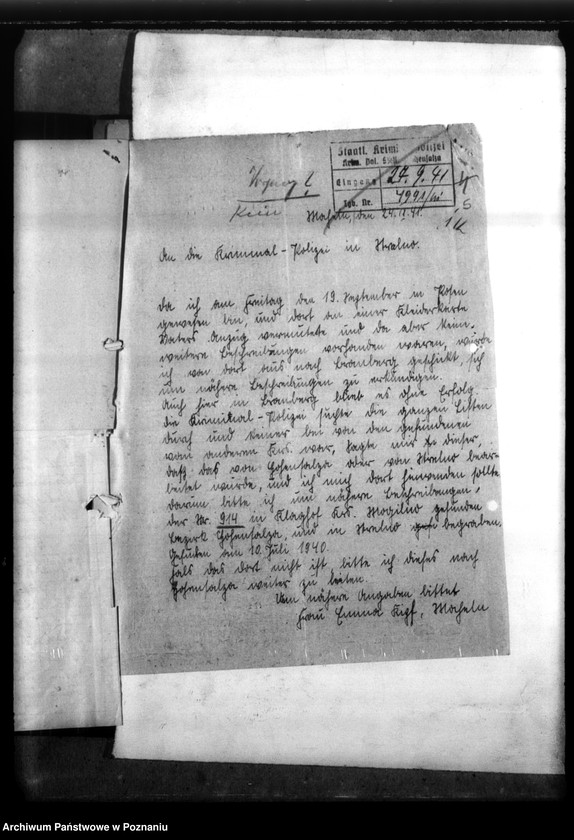 Staatl. Krim: Polizei
Krim. Pol. Hohensalza
Eingang 24.9.41
Tgb. Nr.
Kein
Macheln, den
An die Kriminal-Polizei in Strelno.
Da ich am Freitag den 19. September in Posen
gewesen bin, und dort an einer Kleiderkarte
Vaters Anzug vermutete und da aber keine
weitere Beschreibungen vorhanden waren, wurde
ich von dort aus nach Bromberg geschickt, sich
um nähere Beschreibungen zu erkundigen.
Auch hier in Bromberg blieb es ohne Erfolg.
Die Kriminal-Polizei suchte die ganzen Listen
durch und keiner bei von den gefundenen
vom anderen Krs. war, sagte mir dieser,
daß das von Hohensalza oder von Strelno bear-
beitet würde, und ich mich dort hinwenden sollte
darum bitte ich um nähere Beschreibungen,
der Nr. 914 in Klaghof Krs. Mogilno gefunden
Bezirk Hohensalza, und in Strelno begraben.
Gefunden am 10. Juli 1940.
Falls das dort nicht ist, bitte ich dieses nach
Hohensalza weiter zu leiten.
Um nähere Angaben bittet
Frau Emma, Macheln
Archiwum Państwowe w Poznaniu